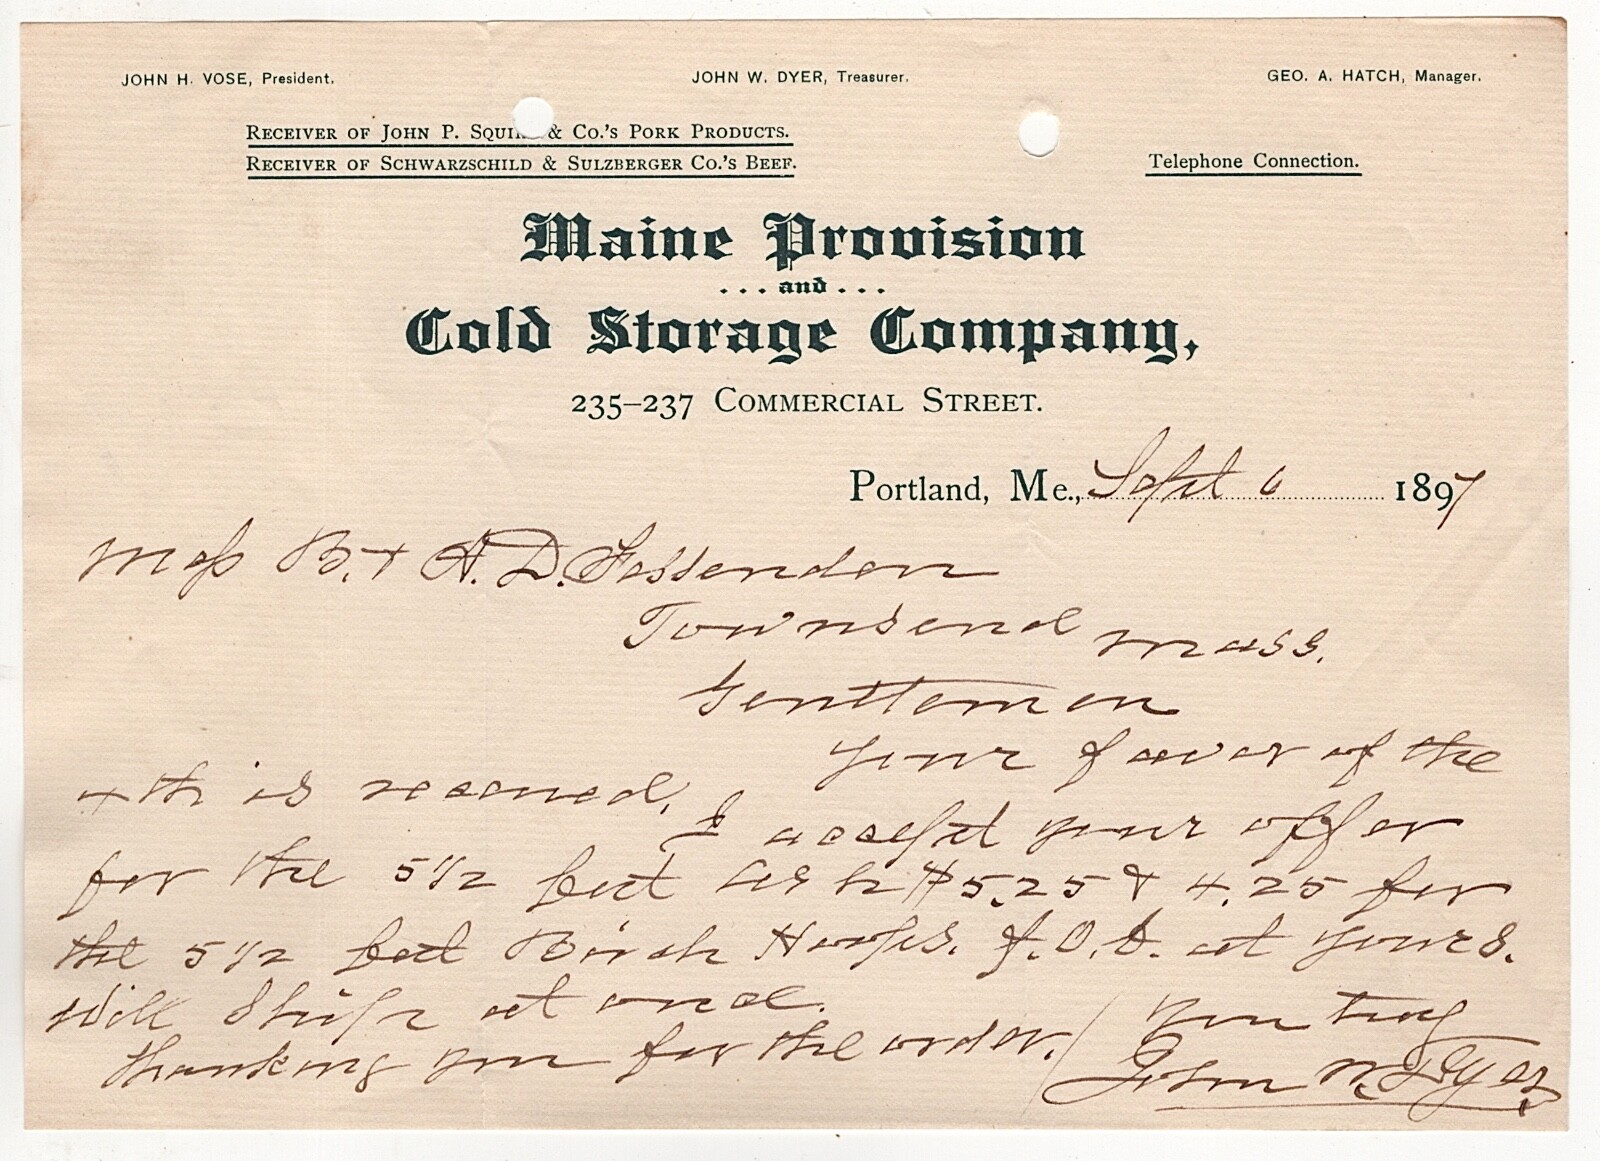 JOHN H. VOSE, President. JOHN W. DYER, Treasurer. GEO. A. HATCH, Manager.
RECEIVER OF JOHN P. SQUI & CO.'S PORK PRODUCTS.
RECEIVER OF SCHWARZSCHILD & SULZBERGER CO.'S BEEF.
Telephone Connection.
Maine Provision
...and...
Cold Storage Company,
235–237 COMMERCIAL STREET.
Portland, Me., Sept 6 1897
Mess B. & A. D. Fessenden
Townsend Mass.
Gentlemen
Your favor of the
4th is received. I accept your offer
for the 5 1/2 feet Ash $5.25 & 4.25 for
the 5 1/2 feet Birch Hoops. F.O.B. at yours.
Will Ship at once.
Thanking you for the order. / Yours truly
John W. Dyer